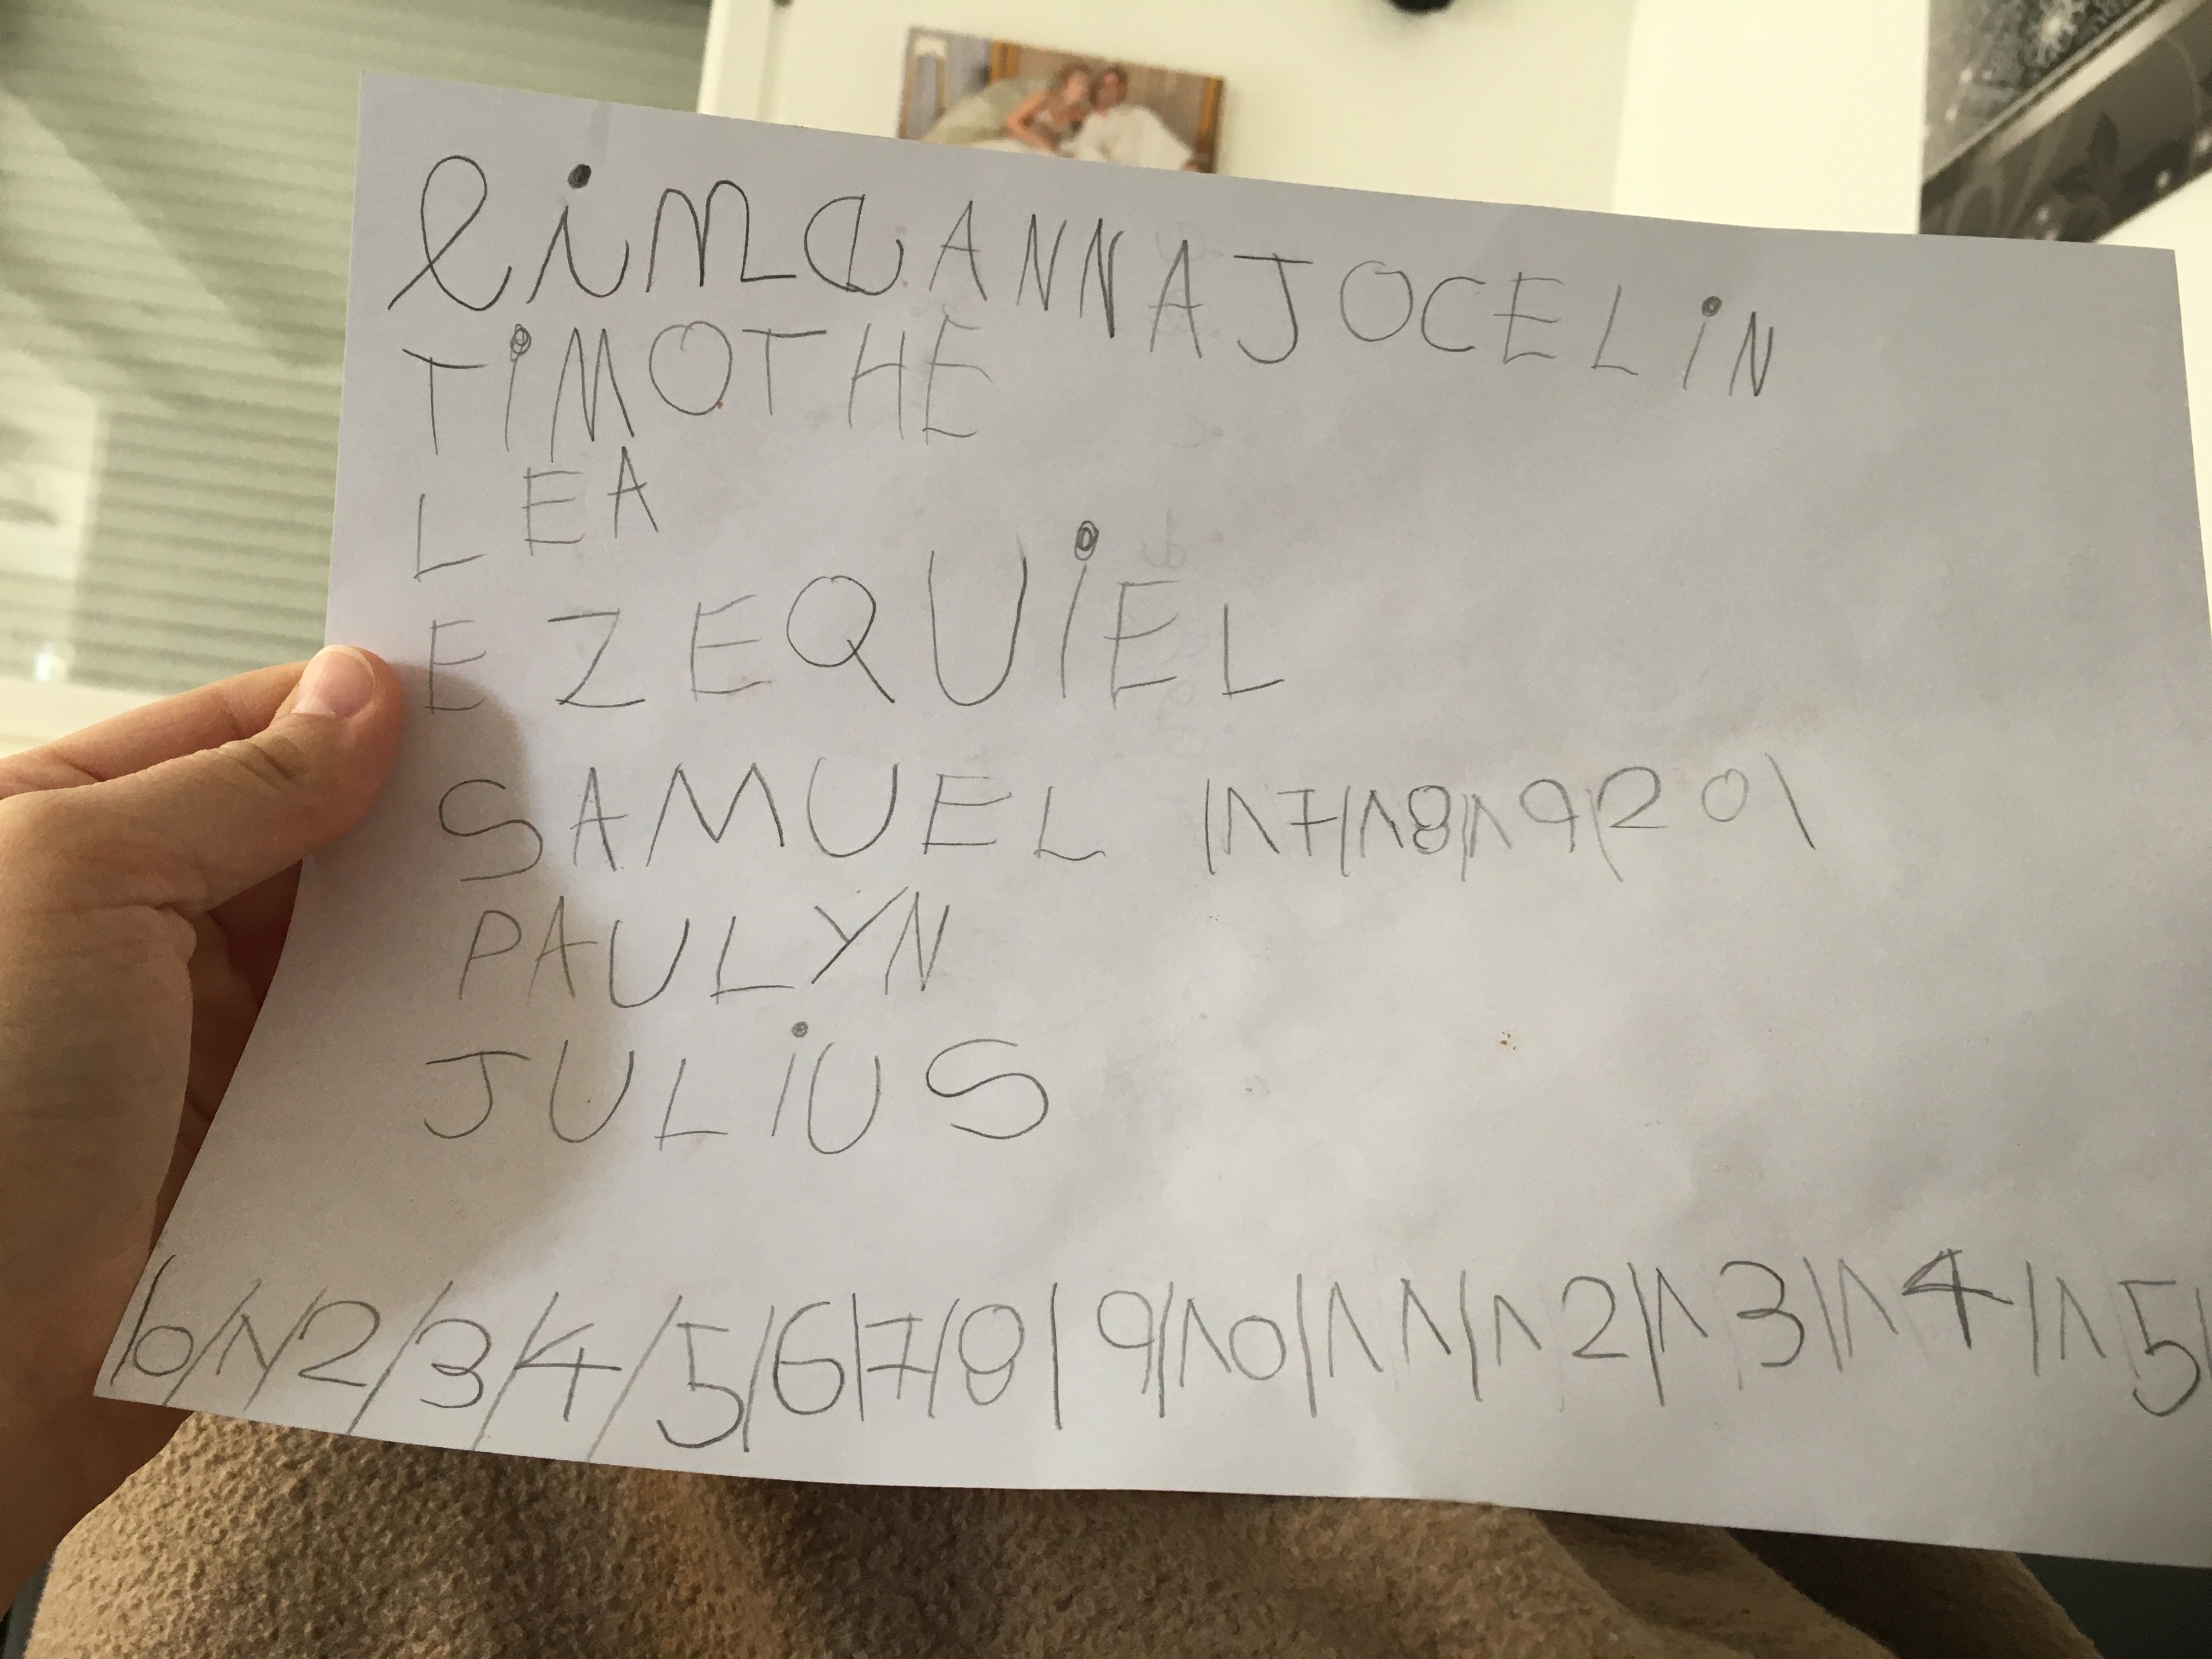 lina ANNA JOCELiN
TiMOTHE
LEA
EZEQUiEL
SAMUEL |17|18|19|20\
PAULYN
JULiUS
/0/1/2/3/4/5/6|7/8|9|10|11|12|13|14|15|